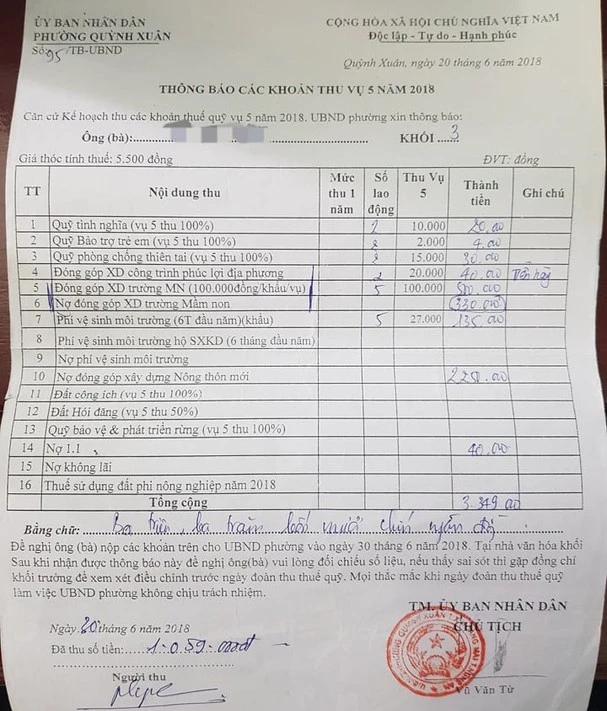 ỦY BAN NHÂN DÂN
PHƯỜNG QUỲNH XUÂN
Số: 95/TB-UBND
CỘNG HÒA XÃ HỘI CHỦ NGHĨA VIỆT NAM
Độc lập - Tự do - Hạnh phúc
Quỳnh Xuân, ngày 20 tháng 6 năm 2018
THÔNG BÁO CÁC KHOẢN THU VỤ 5 NĂM 2018
Căn cứ Kế hoạch thu các khoản thuế quỹ vụ 5 năm 2018. UBND phường xin thông báo:
Ông (bà):.......... KHỐI ...3
Giá thóc tính thuế: 5.500 đồng ĐVT: đồng
TT Nội dung thu Mức thu 1 năm Số lao động Thu Vụ 5 Thành tiền Ghi chú
1 Quỹ tình nghĩa (vụ 5 thu 100%) 2 10.000 20.00
2 Quỹ Bảo trợ trẻ em (vụ 5 thu 100%) 2 2.000 4.00
3 Quỹ phòng chống thiên tai (vụ 5 thu 100%) 2 15.000 30.00
4 Đóng góp XD công trình phúc lợi địa phương 2 20.000 40.00
5 Đóng góp XD trường MN (100.000đồng/khẩu/vụ) 5 100.000 500.00
6 Nợ đóng góp XD trường Mầm non 330.00
7 Phí vệ sinh môi trường (6T đầu năm)(khẩu) 5 27.000 135.00
8 Phí vệ sinh môi trường hộ SXKD (6 tháng đầu năm)
9 Nợ phí vệ sinh môi trường
10 Nợ đóng góp xây dựng Nông thôn mới
11 Đất công ích (vụ 5 thu 100%)
12 Đất Hói đăng (vụ 5 thu 50%)
13 Quỹ bảo vệ & phát triển rừng (vụ 5 thu 100%)
14 Nợ 1.1 40.00
15 Nợ không lãi
16 Thuế sử dụng đất phi nông nghiệp năm 2018
Tổng cộng 3.349.00
Bằng chữ: Ba triệu, ba trăm bốn mươi chín ngàn đồng
Đề nghị ông (bà) nộp các khoản trên cho UBND phường vào ngày 30 tháng 6 năm 2018. Tại nhà văn hóa khối
Sau khi nhận được thông báo này đề nghị ông(bà) vui lòng đối chiếu số liệu, nếu thấy sai sót thì gặp đồng chí
khối trưởng để xem xét điều chỉnh trước ngày đoàn thu thuế quỹ. Mọi thắc mắc khi ngày đoàn thu thuế quỹ
làm việc UBND phường không chịu trách nhiệm.
TM. ỦY BAN NHÂN DÂN
CHỦ TỊCH
Ngày 30 tháng 6 năm 2018
Đã thu số tiền: 1.059.000đ
Người thu
Vũ Văn Từ